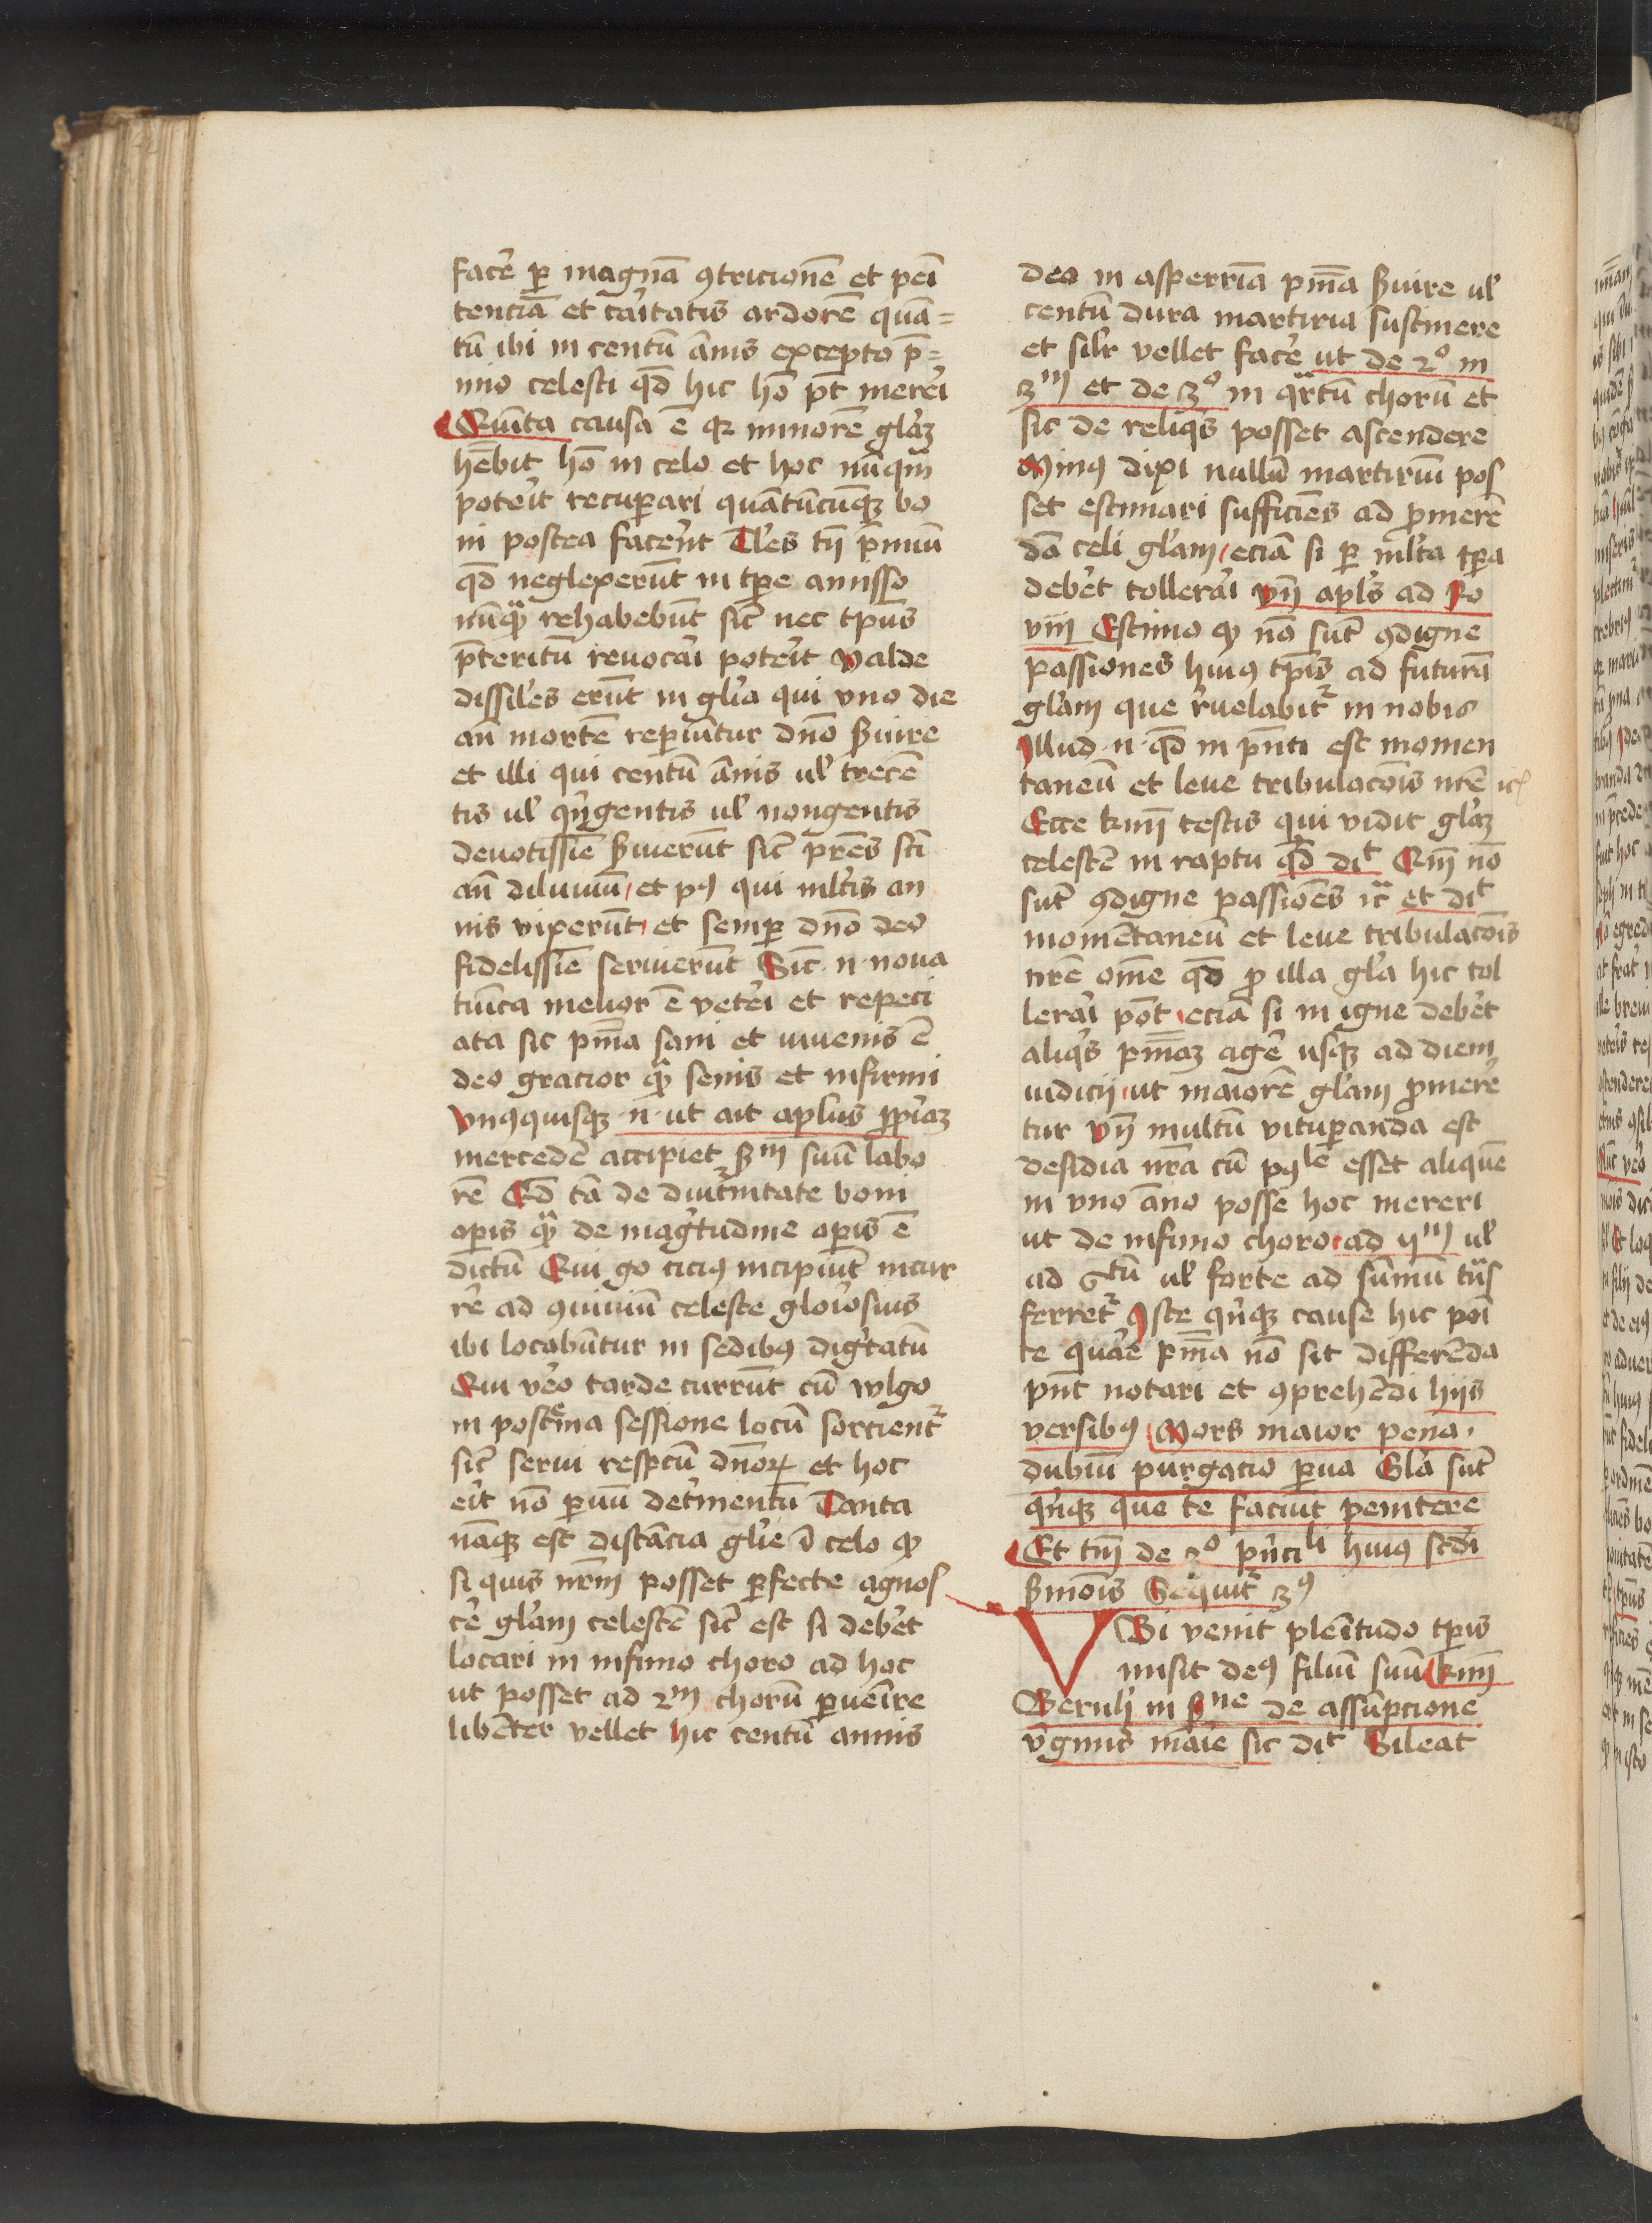 facē̉ ꝑ magnā ꝯtricionē et pēi
tenciā et cāitatis ardorē quā=
tū ibi in centū ānis excepto p̄=
mio celesti qd̄ hic hō pt̄ merēi
Quīta causa ē qꝛ minorē glāꝫ
hēbit hō in celo et hoc nūqꝫ
potēit recuꝑari quātūcūqꝫ bo
ni postea facerēt Tl̄es tn̄ p̄miū
qd̄ neglexerūt in tp̄e amisso
nūqͣꝫ rehabebūt sic̄ nec tp̄us
p̄teritū reuocāi potēit Valde
dissiles erūt in gl̄ia qui vno die
an̄ mortē reꝑiūtur dn̄o ẜuire
et illi qui centū ānis ul̉ trecē
tis ul̉ qīngentis ul̉ nongentis
deuotissīe ẜuierūt sic̄ pr̄es sc̄i
an̄ diluuiū et pꝰ qui ml̉tis an
nis vixerūt et semꝑ dn̄o deo
fidelissīe seruierūt Sic̄ n̄ noua
tuīca melior ē vetēi et repeci
ata sic pn̄ia sani et iuuenis ē
deo gracior qͣꝫ senis et infirmi
vnꝰquisqꝫ n̄ ut ait apl̄us ꝓpīaꝫ
mercedē accipiet ẜm suū labo
rē Et̄ tā de diut̉nitate boni
oꝑis qͣꝫ de mag̉tudine oꝑis ē
dictū Qui g̊o ciciꝰ incipiūt incur
rē ad ꝯuiuiū celeste glōiosius
ibi locabūtur in sedibꝰ dig̉tatū
Qui vēo tarde currūt cū wlgo
in postēma sessione locū sorcient᷑
sic̄ serui respc̄u dn̄oꝝ et hoc
ēit nō ꝑuū det̉mentū Tanta
nāqꝫ est distācia gl̄ie ī celo ꝙ
si quis nr̄m posset ꝑfecte agnos
cē gl̄am celestē sic̄ est si debēt
locari in infimo choro ad hoc
ut posset ad 2m chorū ꝑuēire
libēter vellet hic centū annis
deo in asperrīa pn̄ia ẜuire ul̉
centū dura martiria sustinere
et silr̄ vellet facē̉ ut de 2o in
3m et de 3o in qͣrtū chorū et
sic de reliqīs posset ascendere
Minꝰ dixi nullū martiriū pos
set estimari sufficiēs ad ꝓmerē
dā celi gl̄am eciā si ꝑ ml̉ta tꝑa
debēt tollerāi vn̄ apl̄s ad Ro
viii Estimo ꝙ nō sūt ꝯdigne
passiones huiꝰ tp̄is ad futurā
gl̄am que r̉uelabit᷑ in nobis
Illud n̄ qd̄ in pn̄ti est momen
taneū et leue tribulacōis nr̄e ic̄
Ecce kmi testis qui vidit gl̄aꝫ
celestē in raptu qd̄ dit Qm̄ nō
sūt ꝯdigne passiōes ic̄ et dit
momētaneū et leue tribulacōis
nr̄e om̄e qd̄ ꝓ illa gl̄ia hic tol
lerāi pōt eciā si in igne debēt
aliqīs pn̄iaꝫ agē̉ usqꝫ ad diem
iudicij ut maiorē gl̄am ꝓmerē
tur vn̄ multū vituꝑanda est
desidia nr̄a cū pꝰle esset aliquē
in vno āno posse hoc mereri
ut de infimo choro ad ijm ul̉
ad 5tū ul̉ forte ad sūmū tūs
ferret᷑ Iste qīnqꝫ cause hic pōi
te quāe pn̄ia nō sit differēda
pn̄t notari et ꝯprehēdi hijs
versibꝰ Mors maior pena
dubiū purgacio ꝑua Gl̄a sūt
qīnqꝫ que te faciūt penitere
Et tm̄ de 2o p̄ncili huiꝰ sc̄di
ẜmōis Sequit᷑ 3ꝰ
VBi venit plēitudo tp̄is
misit deꝰ filiū suū kmi
Bernh̄ in ẜne de assūpcione
v̉ginis māie sic dit Sileat